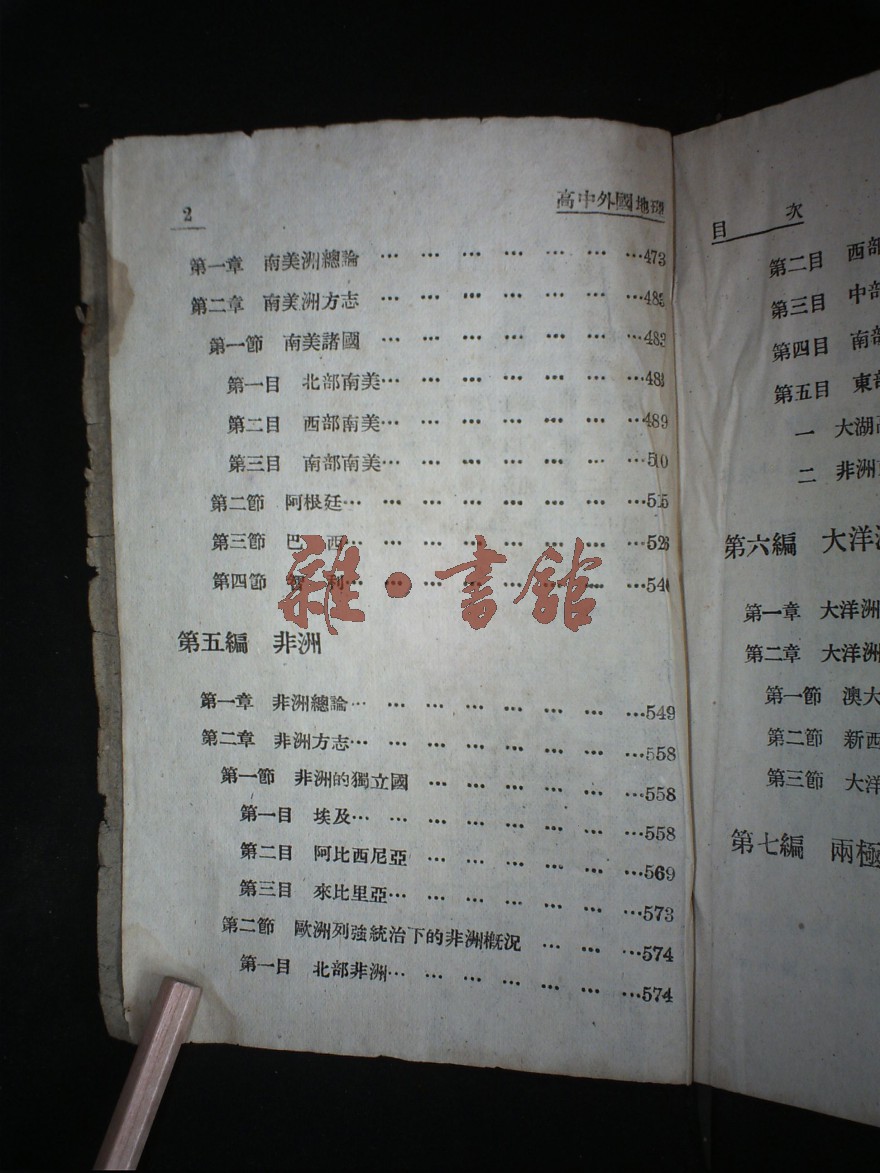 2
高中外國地理
第一章 南美洲總論 … … … … … … …473
第二章 南美洲方志 … … … … … … …483
第一節 南美諸國 … … … … … … …483
第一目 北部南美… … … … … … …483
第二目 西部南美… … … … … … …489
第三目 南部南美… … … … … … …510
第二節 阿根廷… … … … … … … …515
第三節 巴 西… … … … … … … …526
第四節 智 利… … … … … … … …540
第五編 非洲
第一章 非洲總論… … … … … … … …549
第二章 非洲方志… … … … … … … …558
第一節 非洲的獨立國 … … … … … …558
第一目 埃及… … … … … … … …558
第二目 阿比西尼亞 … … … … … …569
第三目 來比里亞… … … … … … …573
第二節 歐洲列強統治下的非洲概況 … … …574
第一目 北部非洲… … … … … … …574
目 次
第二目 西部
第三目 中部
第四目 南部
第五目 東部
一 大湖
二 非洲
第六編 大洋
第一章 大洋洲
第二章 大洋洲
第一節 澳大
第二節 新西
第三節 大洋
第七編 兩極
雜·書館